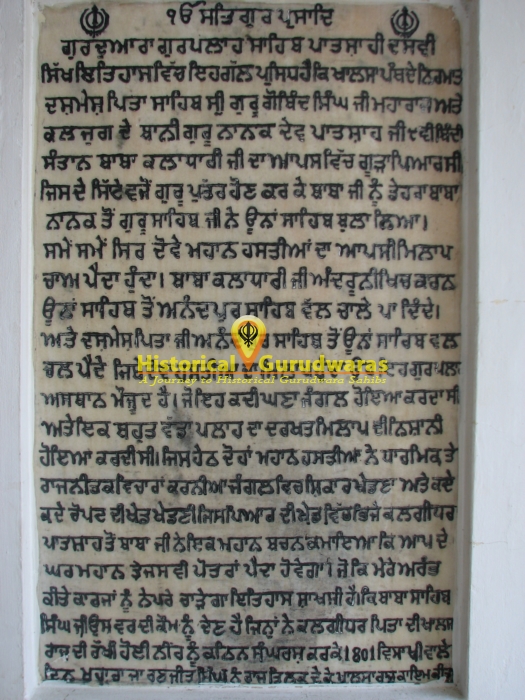 ੧ੴ ਸਤਿ ਗੁਰ ਪ੍ਰਸਾਦਿ
ਗੁਰਦੁਆਰਾ ਗੁਰਪਲਾਹ ਸਾਹਿਬ ਪਾਤਸਾਹੀ ਦਸਵੀ
ਸਿੱਖ ਇਤਿਹਾਸ ਵਿੱਚ ਇਹ ਗੱਲ ਪ੍ਰਸਿਧ ਹੈ ਕਿ ਖਾਲਸਾ ਪੰਥ ਦੇ
ਦਸਮੇਸ਼ ਪਿਤਾ ਸਾਹਿਬ ਸ੍ਰੀ ਗੁਰੂ ਗੋਬਿੰਦ ਸਿੰਘ ਜੀ ਮਹਾਰਾਜ ਅਤੇ
ਕਲਜੁਗ ਦੇ ਬਾਨੀ ਗੁਰੂ ਨਾਨਕ ਦੇਵ ਪਾਤਸ਼ਾਹ ਜੀ ੯ਵੀ ਬਿੰਦੀ
ਸੰਤਾਨ ਬਾਬਾ ਕਲਾਧਾਰੀ ਜੀ ਦਾ ਆਪਸ ਵਿੱਚ ਗੂੜਾ ਪਿਆਰ ਸੀ
ਜਿਸ ਦੇ ਸਿੱਟੇ ਵਜੋਂ ਗੁਰੂ ਪੁਤਰ ਹੋਣ ਕਰ ਕੇ ਬਾਬਾ ਜੀ ਨੂੰ ਡੇਹਰਾ ਬਾਬਾ
ਨਾਨਕ ਤੋਂ ਗੁਰੂ ਸਾਹਿਬ ਜੀ ਨੇ ਊਨਾਂ ਸਾਹਿਬ ਬੁਲਾ ਲਿਆ।
ਸਮੇਂ ਸਮੇਂ ਸਿਰ ਦੋਵੇ ਮਹਾਨ ਹਸਤੀਆਂ ਦਾ ਆਪਸੀ ਮਿਲਾਪ
ਚਾਅ ਪੈਦਾ ਹੁੰਦਾ। ਬਾਬਾ ਕਲਾਧਾਰੀ ਜੀ ਅੰਦਰੂਨੀ ਖਿਚ ਕਰਨ
ਊਨਾਂ ਸਾਹਿਬ ਤੋਂ ਅਨੰਦਪੁਰ ਸਾਹਿਬ ਵੱਲ ਚਾਲੇ ਪਾ ਦਿੰਦੇ।
ਅਤੇ ਦਸਮੇਸ਼ ਪਿਤਾ ਜੀ ਸਾਹਿਬ ਤੋਂ ਊਨਾਂ ਸਾਹਿਬ ਵਲ
ਚਲ ਪੈਂਦੇ
Historical Gurudwaras
A Journey to Historical Gurudwara Sahibs
ਅਸਥਾਨ ਮੌਜੂਦ ਹੈ। ਜੋ ਇਹ ਕਦੀ ਘਣਾ ਜੰਗਲ ਹੋਇਆ ਕਰਦਾ ਸੀ
ਅਤੇ ਇਕ ਬਹੁਤ ਵੱਡਾ ਪਲਾਹ ਦਾ ਦਰਖਤ ਮਿਲਾਪ ਦੀ ਨਿਸ਼ਾਨੀ
ਹੋਇਆ ਕਰਦੀ ਸੀ। ਜਿਸ ਹੇਠ ਦੋਹਾਂ ਮਹਾਨ ਹਸਤੀਆ ਨੇ ਧਾਰਮਿਕ ਤੇ
ਰਾਜਨੀਤਕ ਵਿਚਾਰਾਂ ਕਰਨੀਆ ਜੰਗਲ ਵਿਚ ਸ਼ਿਕਾਰ ਖੇਡਣਾ ਅਤੇ ਕਦੇ
ਕਦੇ ਚੋਪਟ ਦੀ ਖੇਡ ਖੇਡਣੀ ਜਿਸ ਪਿਆਰ ਦੀ ਖੇਡ ਵਿੱਚ ਭਿਜੇ ਕਲਗੀਧਰ
ਪਾਤਸ਼ਾਹ ਤੋਂ ਬਾਬਾ ਜੀ ਨੇ ਇਕ ਮਹਾਨ ਬਚਨ ਕਮਾਇਆ ਕਿ ਆਪ ਦੇ
ਘਰ ਮਹਾਨ ਤੇਜਸਵੀ ਪੋਤਰਾਂ ਪੈਦਾ ਹੋਵੇਗਾ। ਜੋ ਕਿ ਮੇਰੇ ਅਰੰਭ
ਕੀਤੇ ਕਾਰਜਾਂ ਨੂੰ ਨੇਪਰੇ ਚਾੜੇਗਾ ਇਤਿਹਾਸ ਸ਼ਾਖਸੀ ਹੈ। ਕਿ ਬਾਬਾ ਸਾਹਿਬ
ਸਿੰਘ ਜੀ ਉਸ ਵਰ ਦੀ ਕੌਮ ਨੂੰ ਦੇਣ ਹੈ ਜਿਨ੍ਹਾਂ ਨੇ ਕਲਗੀਧਰ ਪਿਤਾ ਦੀ ਖਾਲਸਾ
ਰਾਜ ਦੀ ਰੱਖੀ ਹੋਈ ਨੀਂਰ ਨੂੰ ਕਠਿਨ ਸੰਘਰਸ਼ ਕਰਕੇ 1801 ਵਿਸਾਖੀ ਵਾਲੇ
ਦਿਨ ਮਹਾਰਾਜਾ ਰਣਜੀਤ ਸਿੰਘ ਨੂੰ ਰਾਜ ਤਿਲਕ ਦੇ ਕੇ ਖਾਲਸਾ ਰਾਜ ਕਾਇਮ ਕੀਤਾ